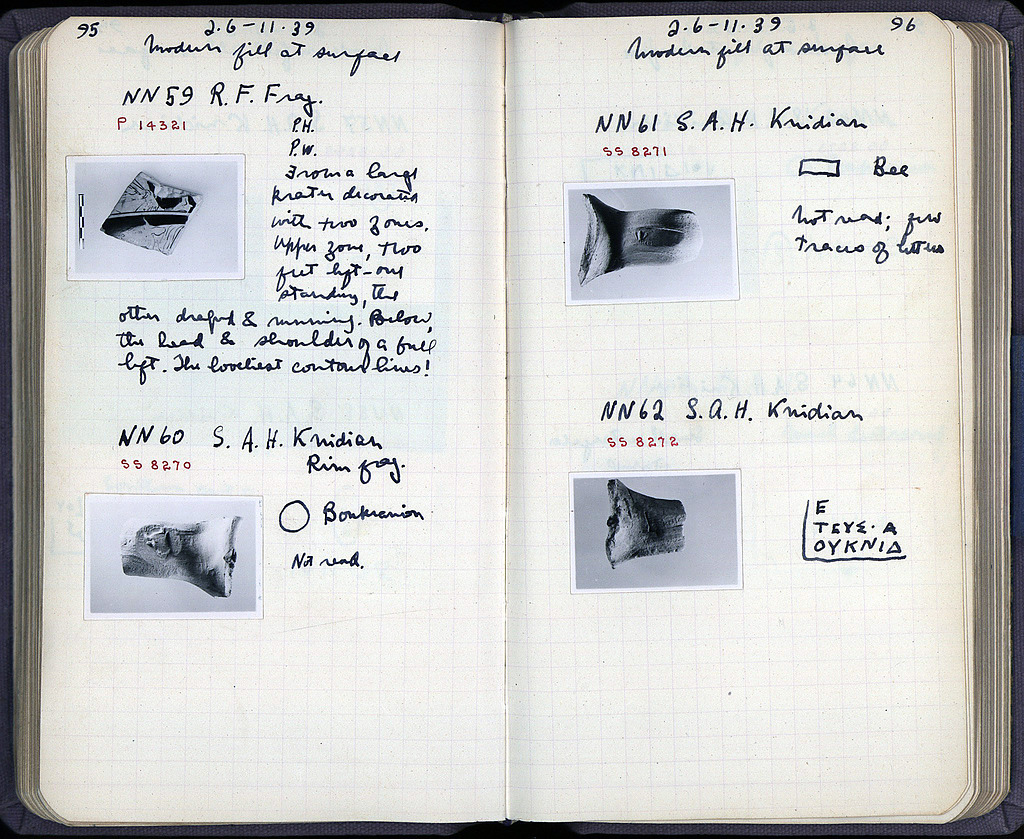 95
2·6-11·39
Modern fill at surface
NN 59 R. F. Frag.
P 14321
P.H.
P.W.
From a large
krater decorated
with two zones.
Upper zone, two
feet left-one
standing, the
other draped & running. Below,
the head & shoulder of a full
left. The loveliest contour lines!
NN 60 S. A. H. Knidian
Rim frag.
SS 8270
Boukranion
Not read.
2·6-11·39
96
Modern fill at surface
NN 61 S. A. H. Knidian
SS 8271
Bee
Not read; few
traces of letters
NN 62 S. A. H. Knidian
SS 8272
Ε
ΤΕΥΣ·Α
ΟΥΚΝΙΔ